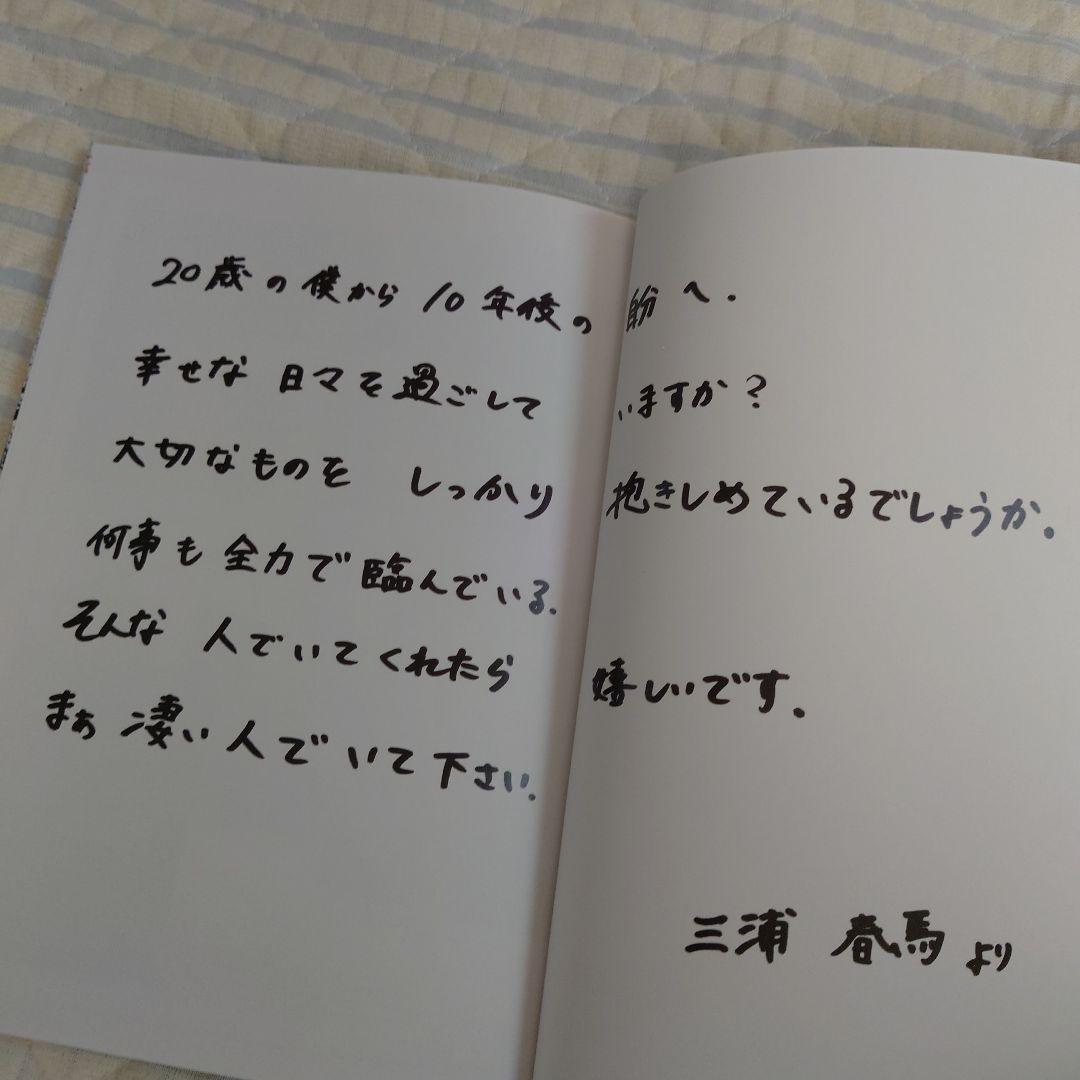 20歳の僕から10年後の自分へ.
幸せな日々を過ごしていますか?
大切なものを しっかり抱きしめているでしょうか.
何事も全力で臨んでいる.
そんな 人でいてくれたら嬉しいです.
まぁ 凄い人でいて下さい.
三浦 春馬より